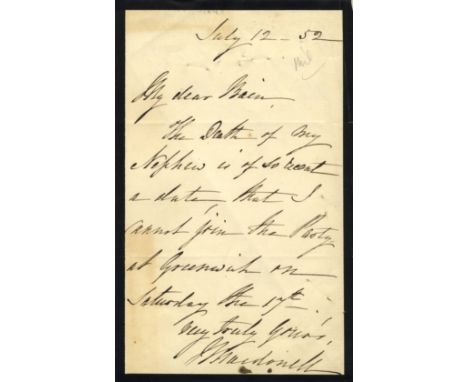 July 12 - 52
My dear Bain,
The Death of my
Nephew is of so recent
a date, that I
cannot join the Party
at Greenwich on
Saturday the 17th.
Very truly Yours,
J Macdonell